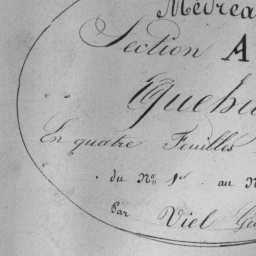 Médréa
Section A
Quehu
En quatre Feuilles
du N.º 1.er au N
Par Viel